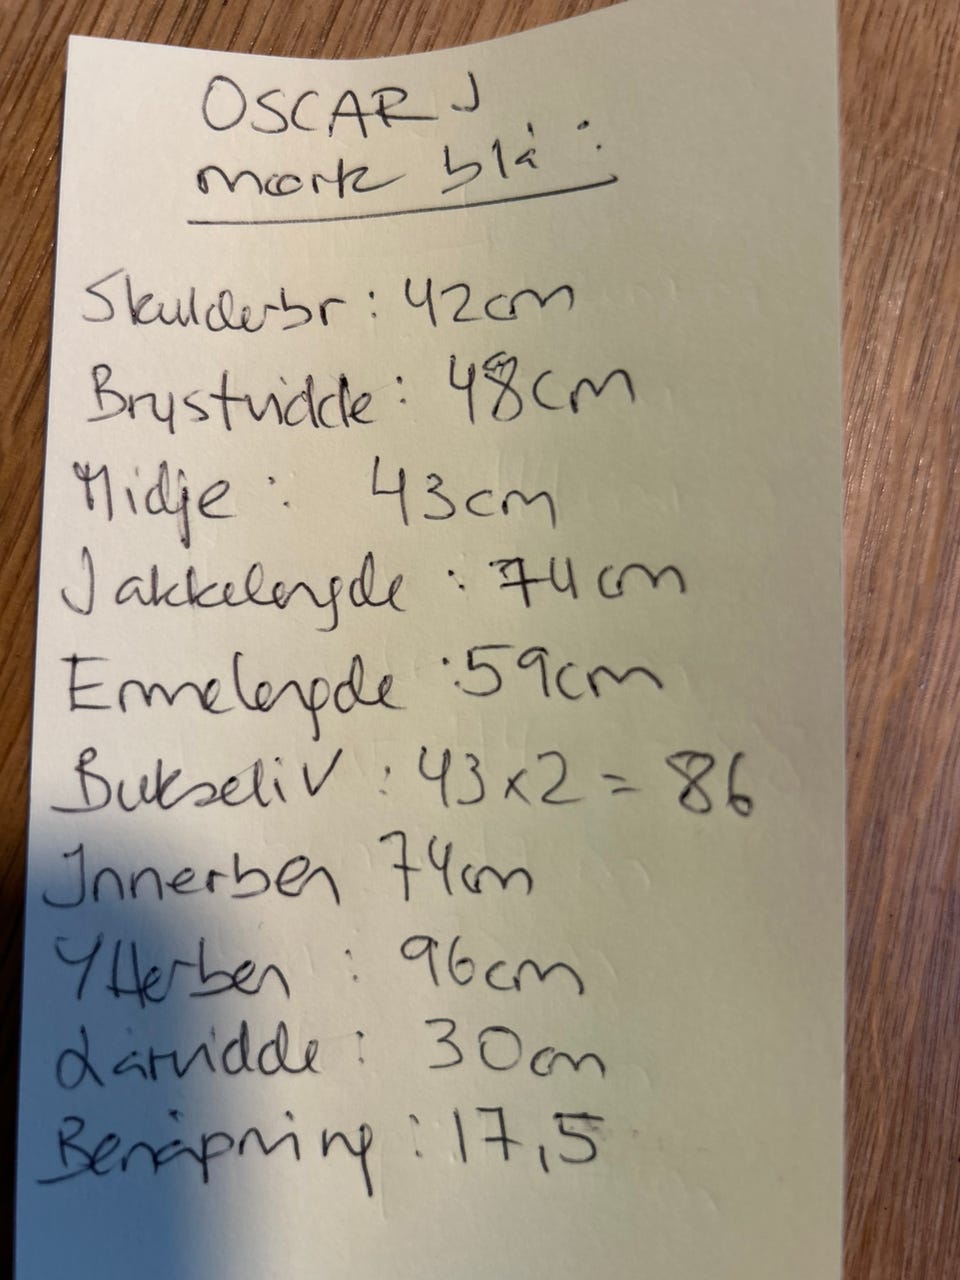 OSCAR J
mørk blå :
Skulderbr : 42cm
Brystvidde : 48cm
Midje : 43cm
Jakkelengde : 74cm
Ermelengde : 59cm
Bukseliv : 43x2 = 86
Innerben 74cm
Ytterben : 96cm
Lårvidde : 30cm
Benåpning : 17,5